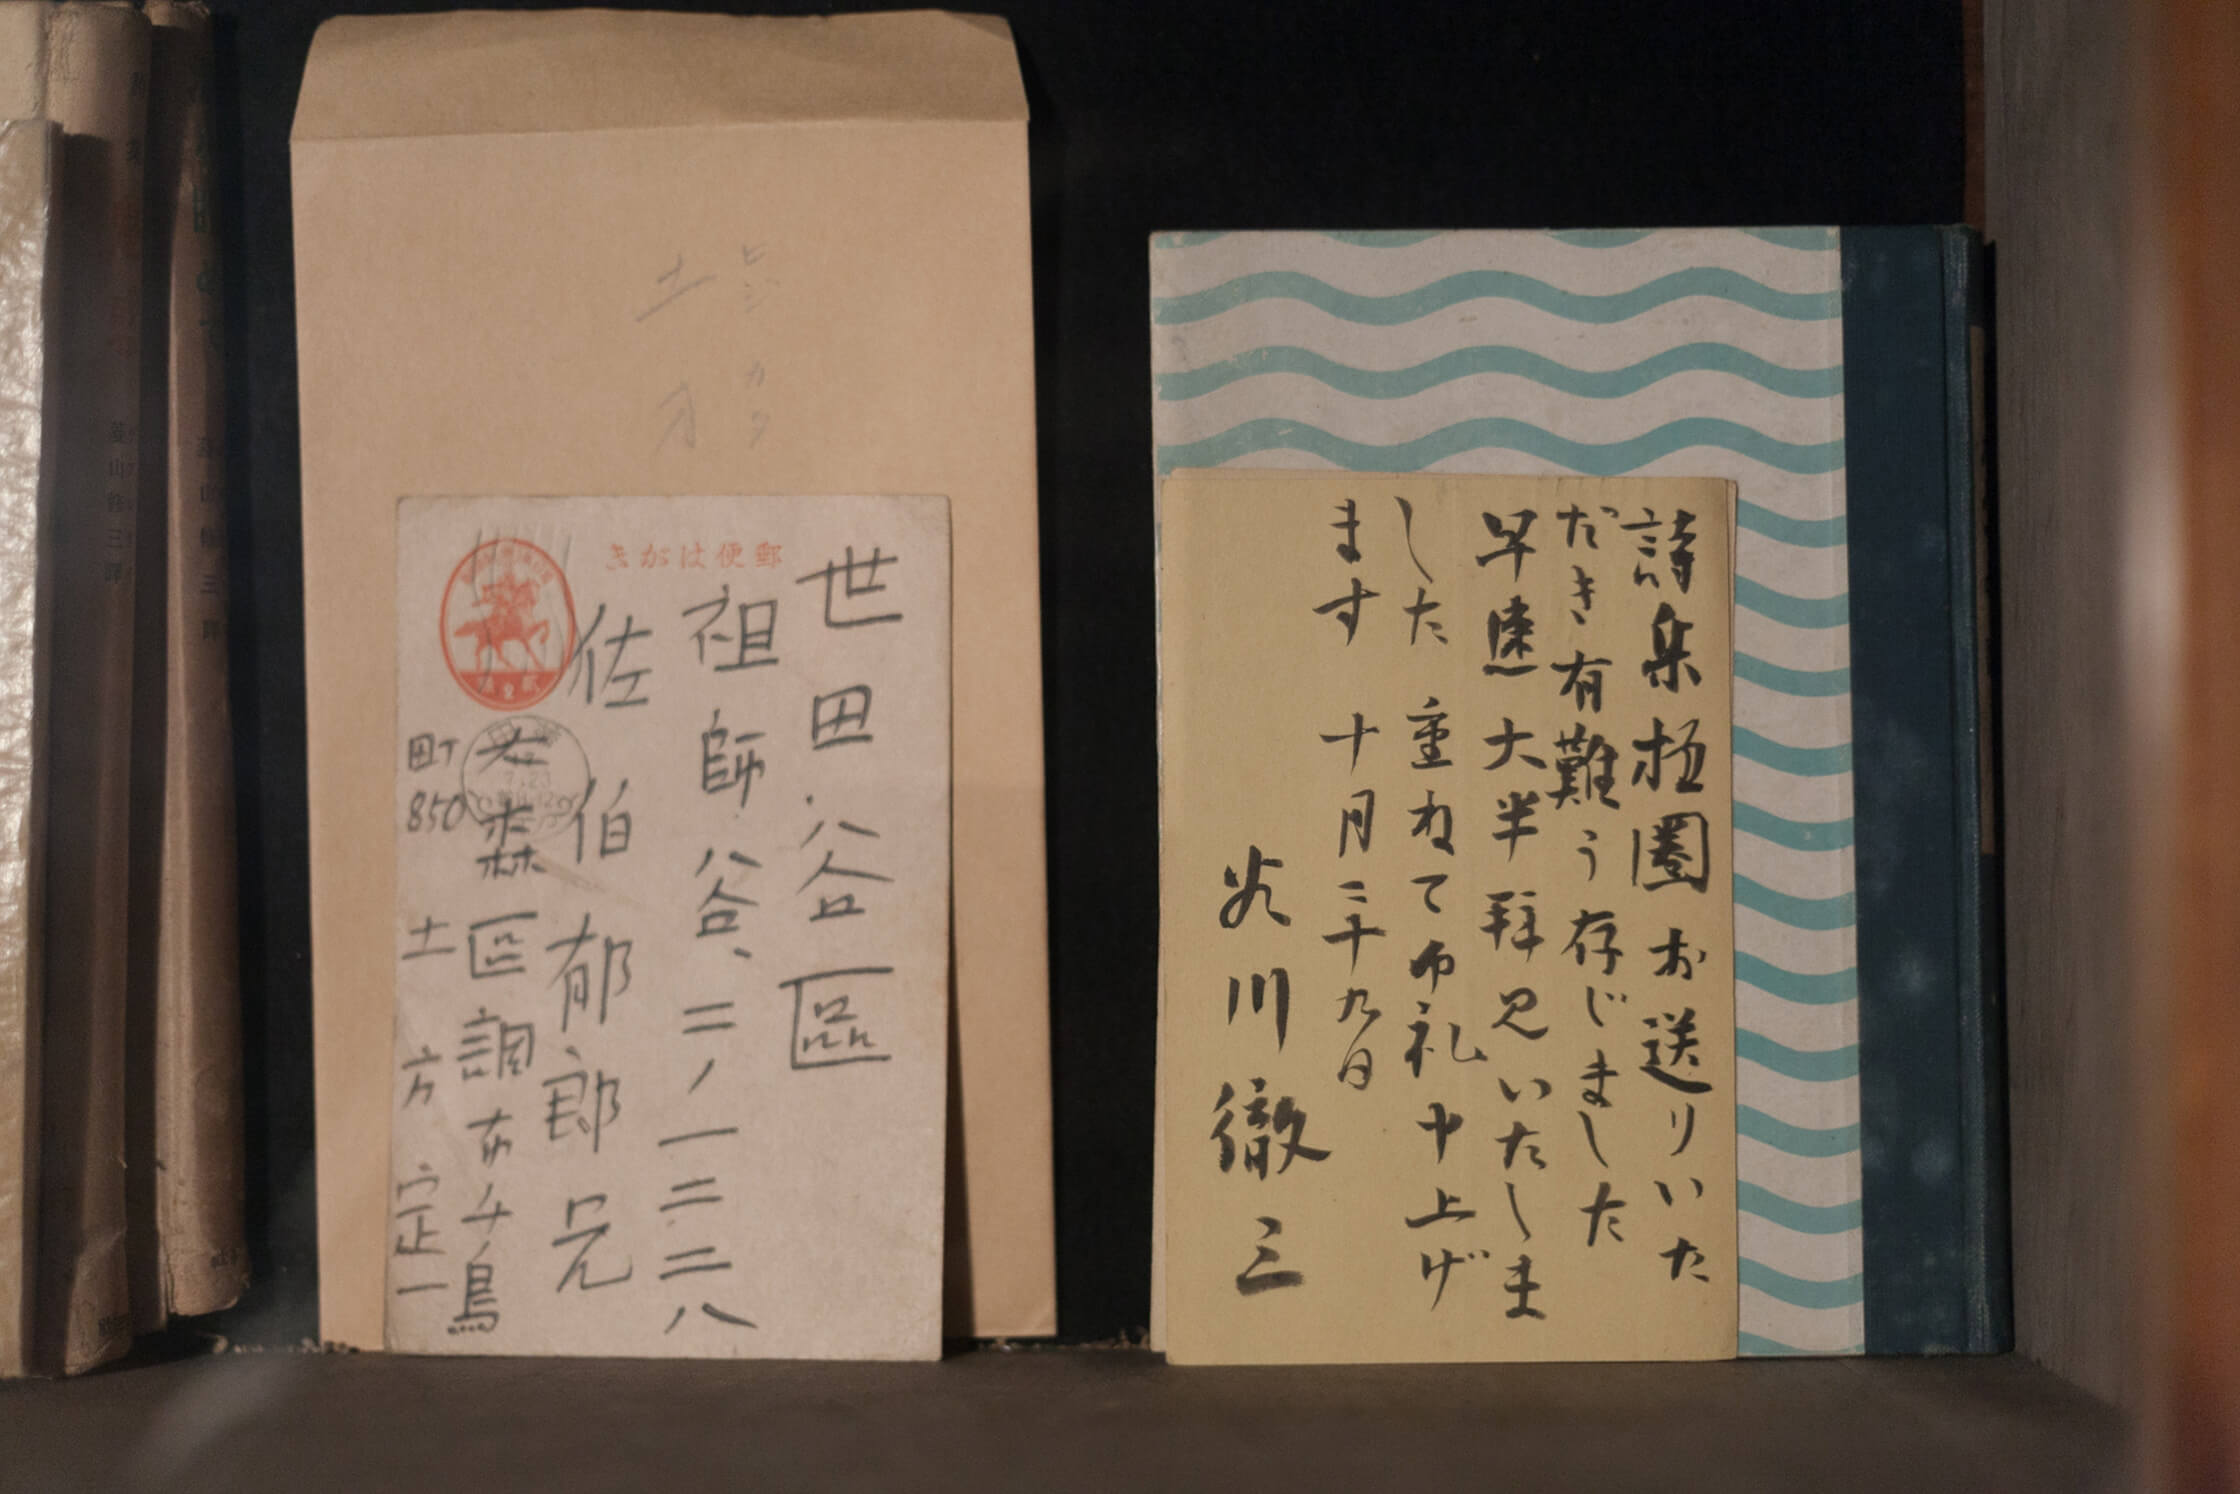 詩集極圏お送りいた
だき有難う存じました
早速大半拝見いたしま
した 重ねて御礼申上げ
ます 十月二十九日
谷川徹三
土方
ヒジカタ
郵便はがき
世田谷區
祖師谷、二ノ一三二八
佐伯郁郎兄
大森區調布千鳥
町850
土方定一
菱山修三譯
山修三譯